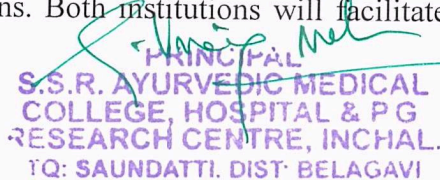 ns. Both institutions will facilitate
PRINCIPAL
S.S.R. AYURVEDIC MEDICAL
COLLEGE, HOSPITAL & P G
RESEARCH CENTRE, INCHAL.
TQ: SAUNDATTI. DIST: BELAGAVI